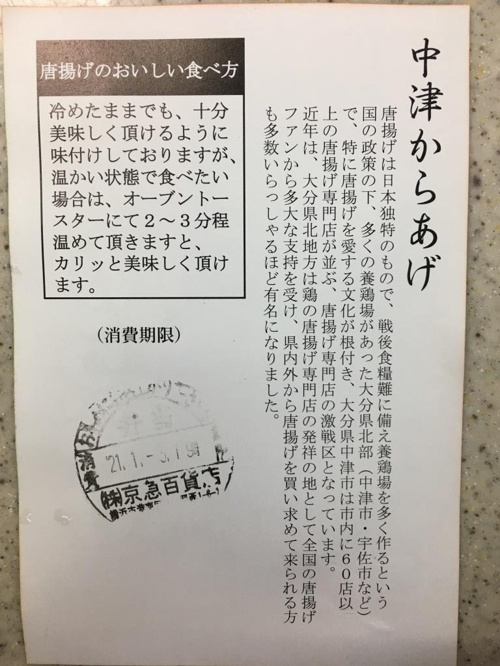 中津からあげ
唐揚げは日本独特のもので、戦後食糧難に備え養鶏場を多く作るという
国の政策の下、多くの養鶏場があった大分県北部（中津市・宇佐市など）
で、特に唐揚げを愛する文化が根付き、大分県中津市は市内に６０店以
上の唐揚げ専門店が並ぶ、唐揚げ専門店の激戦区となっています。
近年は、大分県北地方は鶏の唐揚げ専門店の発祥の地として全国の唐揚げ
ファンから多大な支持を受け、県内外から唐揚げを買い求めて来られる方
も多数いらっしゃるほど有名になりました。
唐揚げのおいしい食べ方
冷めたままでも、十分
美味しく頂けるように
味付けしておりますが、
温かい状態で食べたい
場合は、オーブントー
スターにて２～３分程
温めて頂きますと、
カリッと美味しく頂け
ます。
（消費期限）
消費
'21.1.-3.
㈱京急百貨店